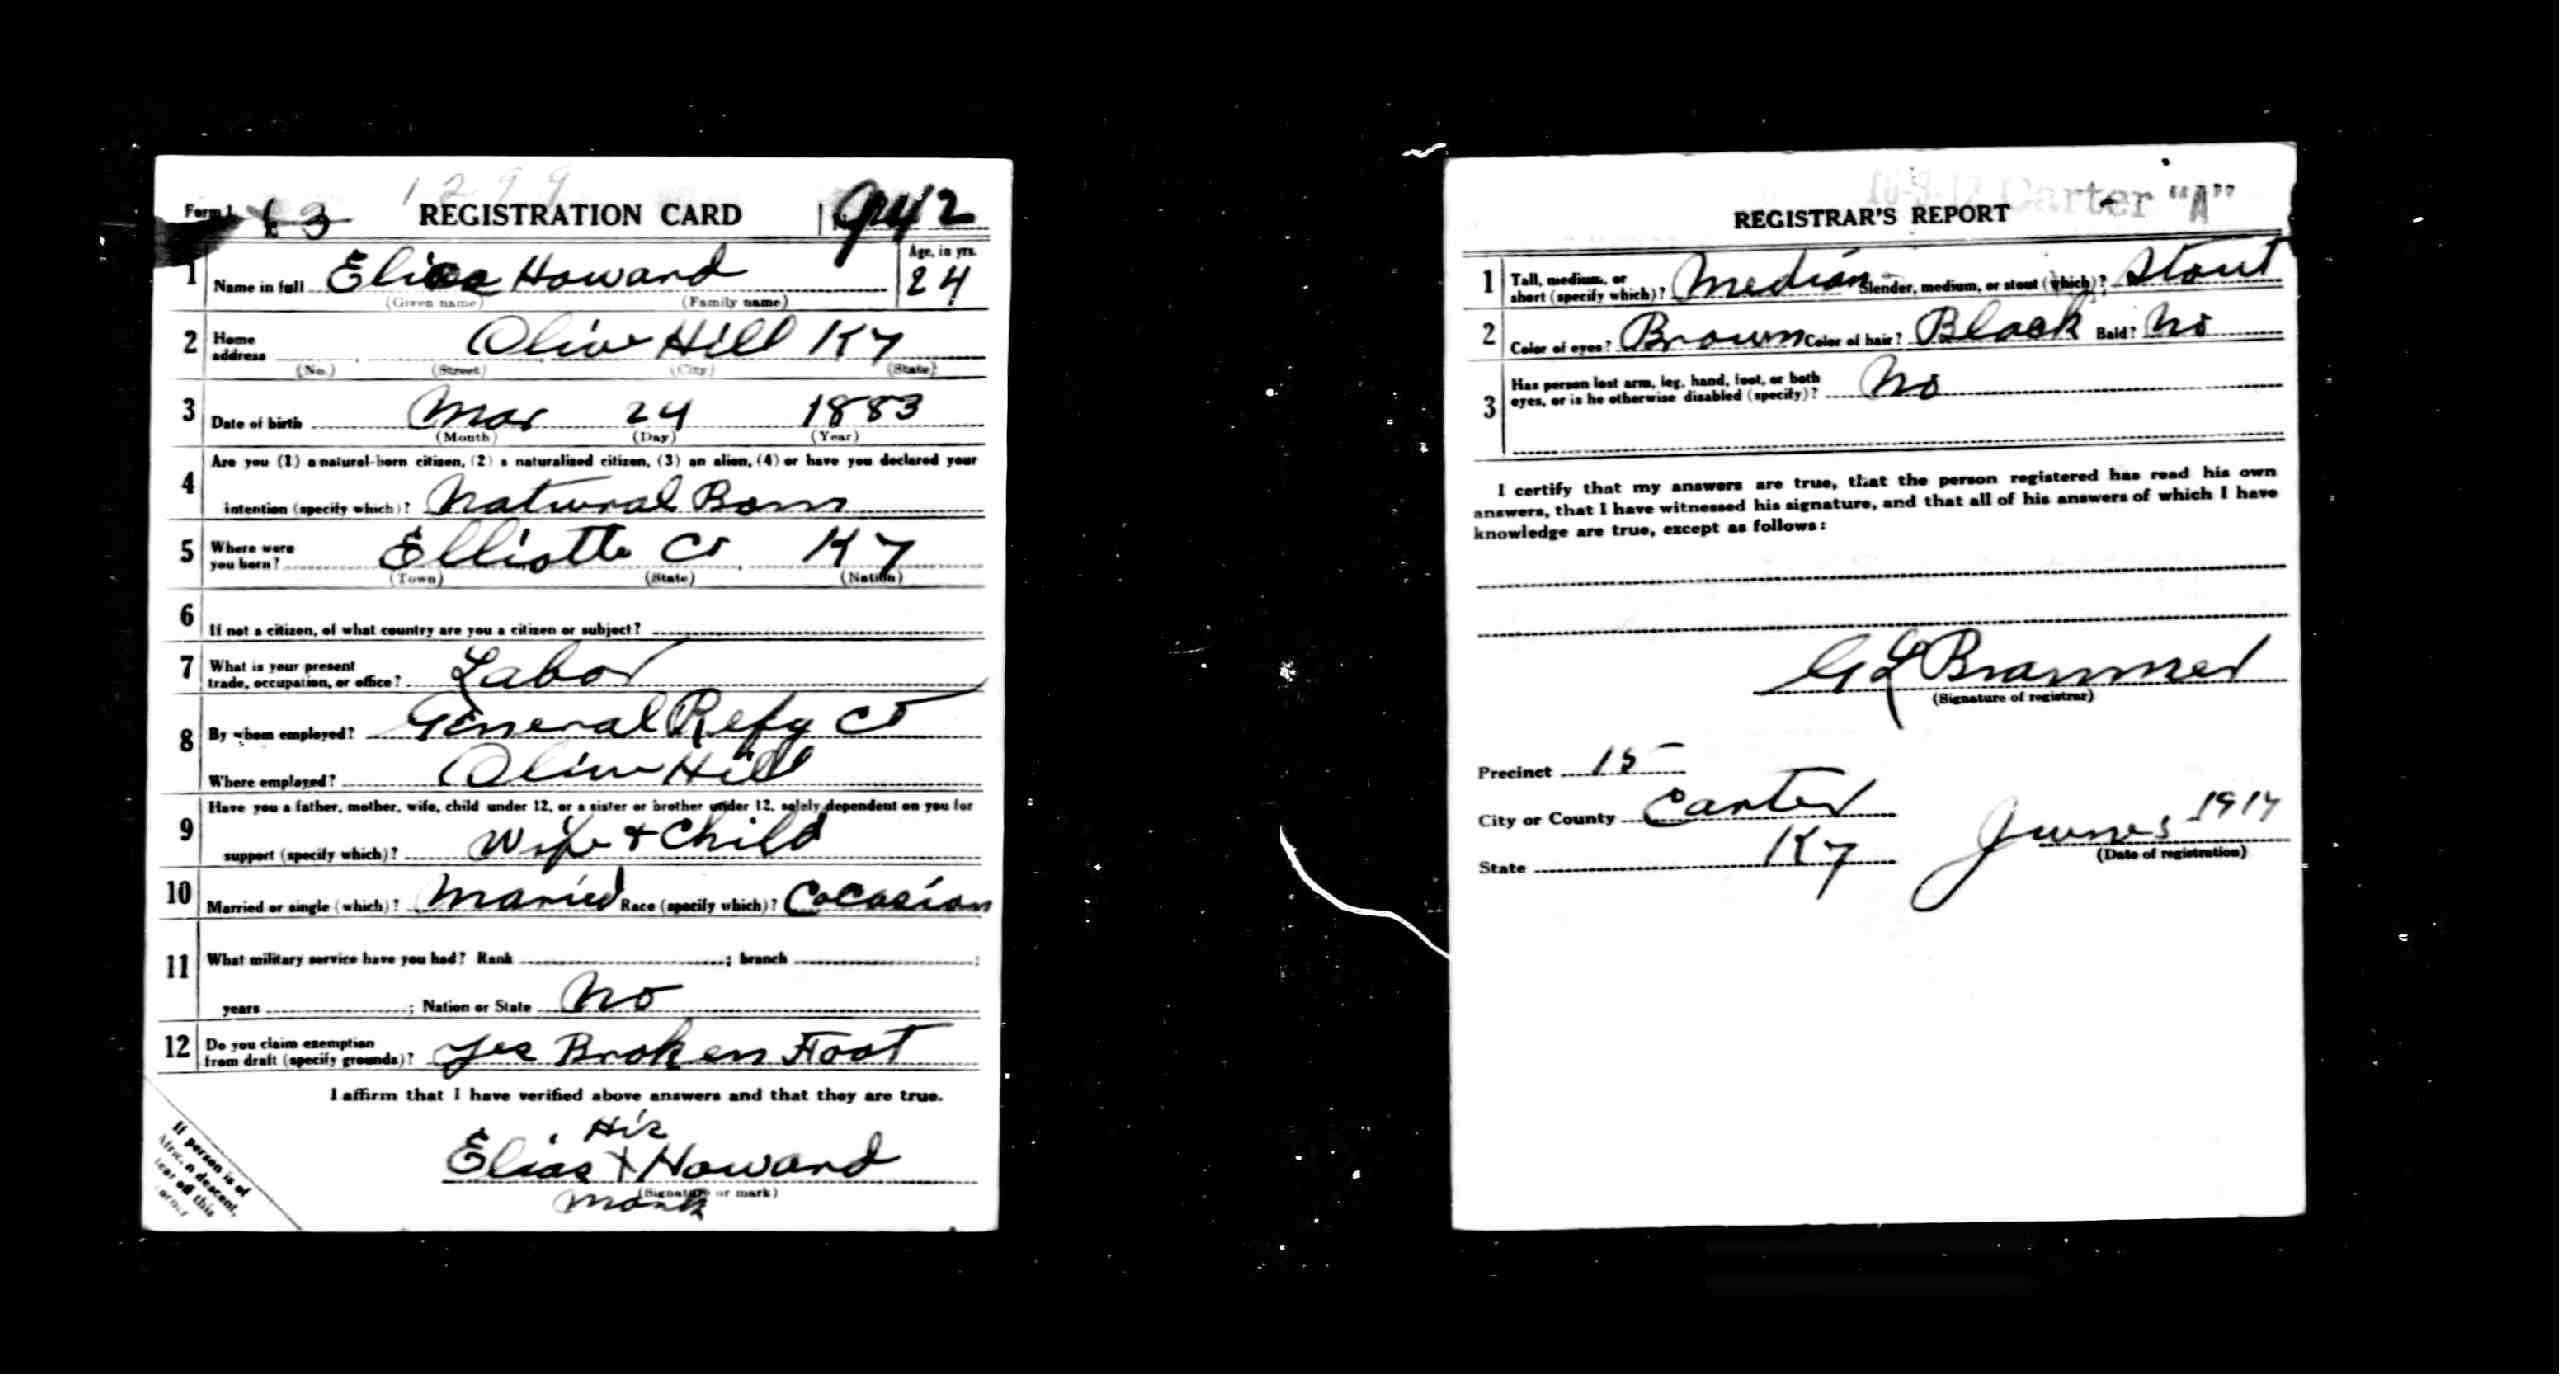 1299
Form 1 13 REGISTRATION CARD 942
1 Name in full Elias Howard Age, in yrs. 24
(Given name) (Family name)
2 Home address Olive Hill Ky
(No.) (Street) (City) (State)
3 Date of birth Mar 24 1883
(Month) (Day) (Year)
4 Are you (1) a natural-born citizen, (2) a naturalized citizen, (3) an alien, (4) or have you declared your
intention (specify which)? Natural Born
5 Where were you born? Elliotte Co Ky
(Town) (State) (Nation)
6 If not a citizen, of what country are you a citizen or subject?
7 What is your present trade, occupation, or office? Labor
8 By whom employed? General Refy Co
Where employed? Olive Hill
9 Have you a father, mother, wife, child under 12, or a sister or brother under 12, solely dependent on you for
support (specify which)? Wife + Child
10 Married or single (which)? Maried Race (specify which)? Cocasian
11 What military service have you had? Rank ; branch ;
years ; Nation or State No
12 Do you claim exemption from draft (specify grounds)? Yes Broken Foot
I affirm that I have verified above answers and that they are true.
His
Elias X Howard
(Signature or mark)
Mark
If person is of
African descent,
tear off this
corner
Carter "A"
REGISTRAR'S REPORT
1 Tall, medium, or short (specify which)? Median Slender, medium, or stout (which)? Stout
2 Color of eyes? Brown Color of hair? Black Bald? No
3 Has person lost arm, leg, hand, foot, or both eyes, or is he otherwise disabled (specify)? No
I certify that my answers are true, that the person registered has read his own
answers, that I have witnessed his signature, and that all of his answers of which I have
knowledge are true, except as follows:
G L Brammer
(Signature of registrar)
Precinct 15
City or County Carter
State Ky
June 5 1917
(Date of registration)